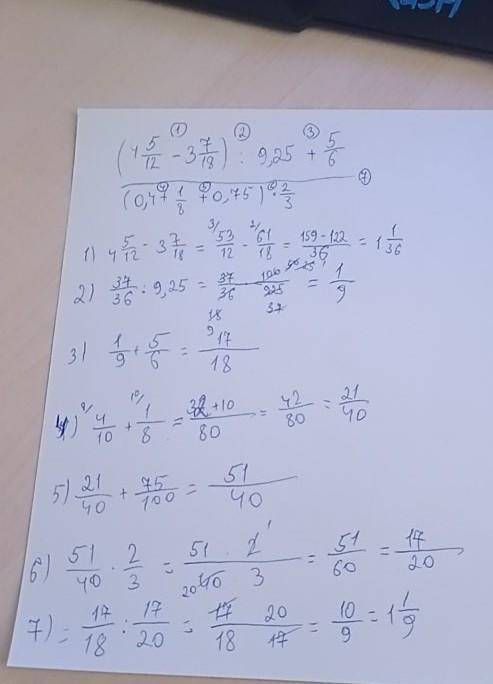 ① ② ③
(4 5/12 - 3 7/18) : 9,25 + 5/6
(0,4 + 1/8 + 0,75) · 2/3 ⑦
1) 4 5/12 - 3 7/18 = 3/ 53/12 - 2/ 61/18 = 159-122/36 = 1 1/36
2) 37/36 : 9,25 = 37/36 · 100/925 = 1/9
3) 1/9 + 5/6 = 17/18
4) 8/ 4/10 + 10/ 1/8 = 32+10/80 = 42/80 = 21/40
5) 21/40 + 75/100 = 51/40
6) 51/40 · 2/3 = 51 · 2 1/20 40 · 3 = 51/60 = 17/20
7) = 17/18 : 17/20 = 17 20/18 17 = 10/9 = 1 1/9